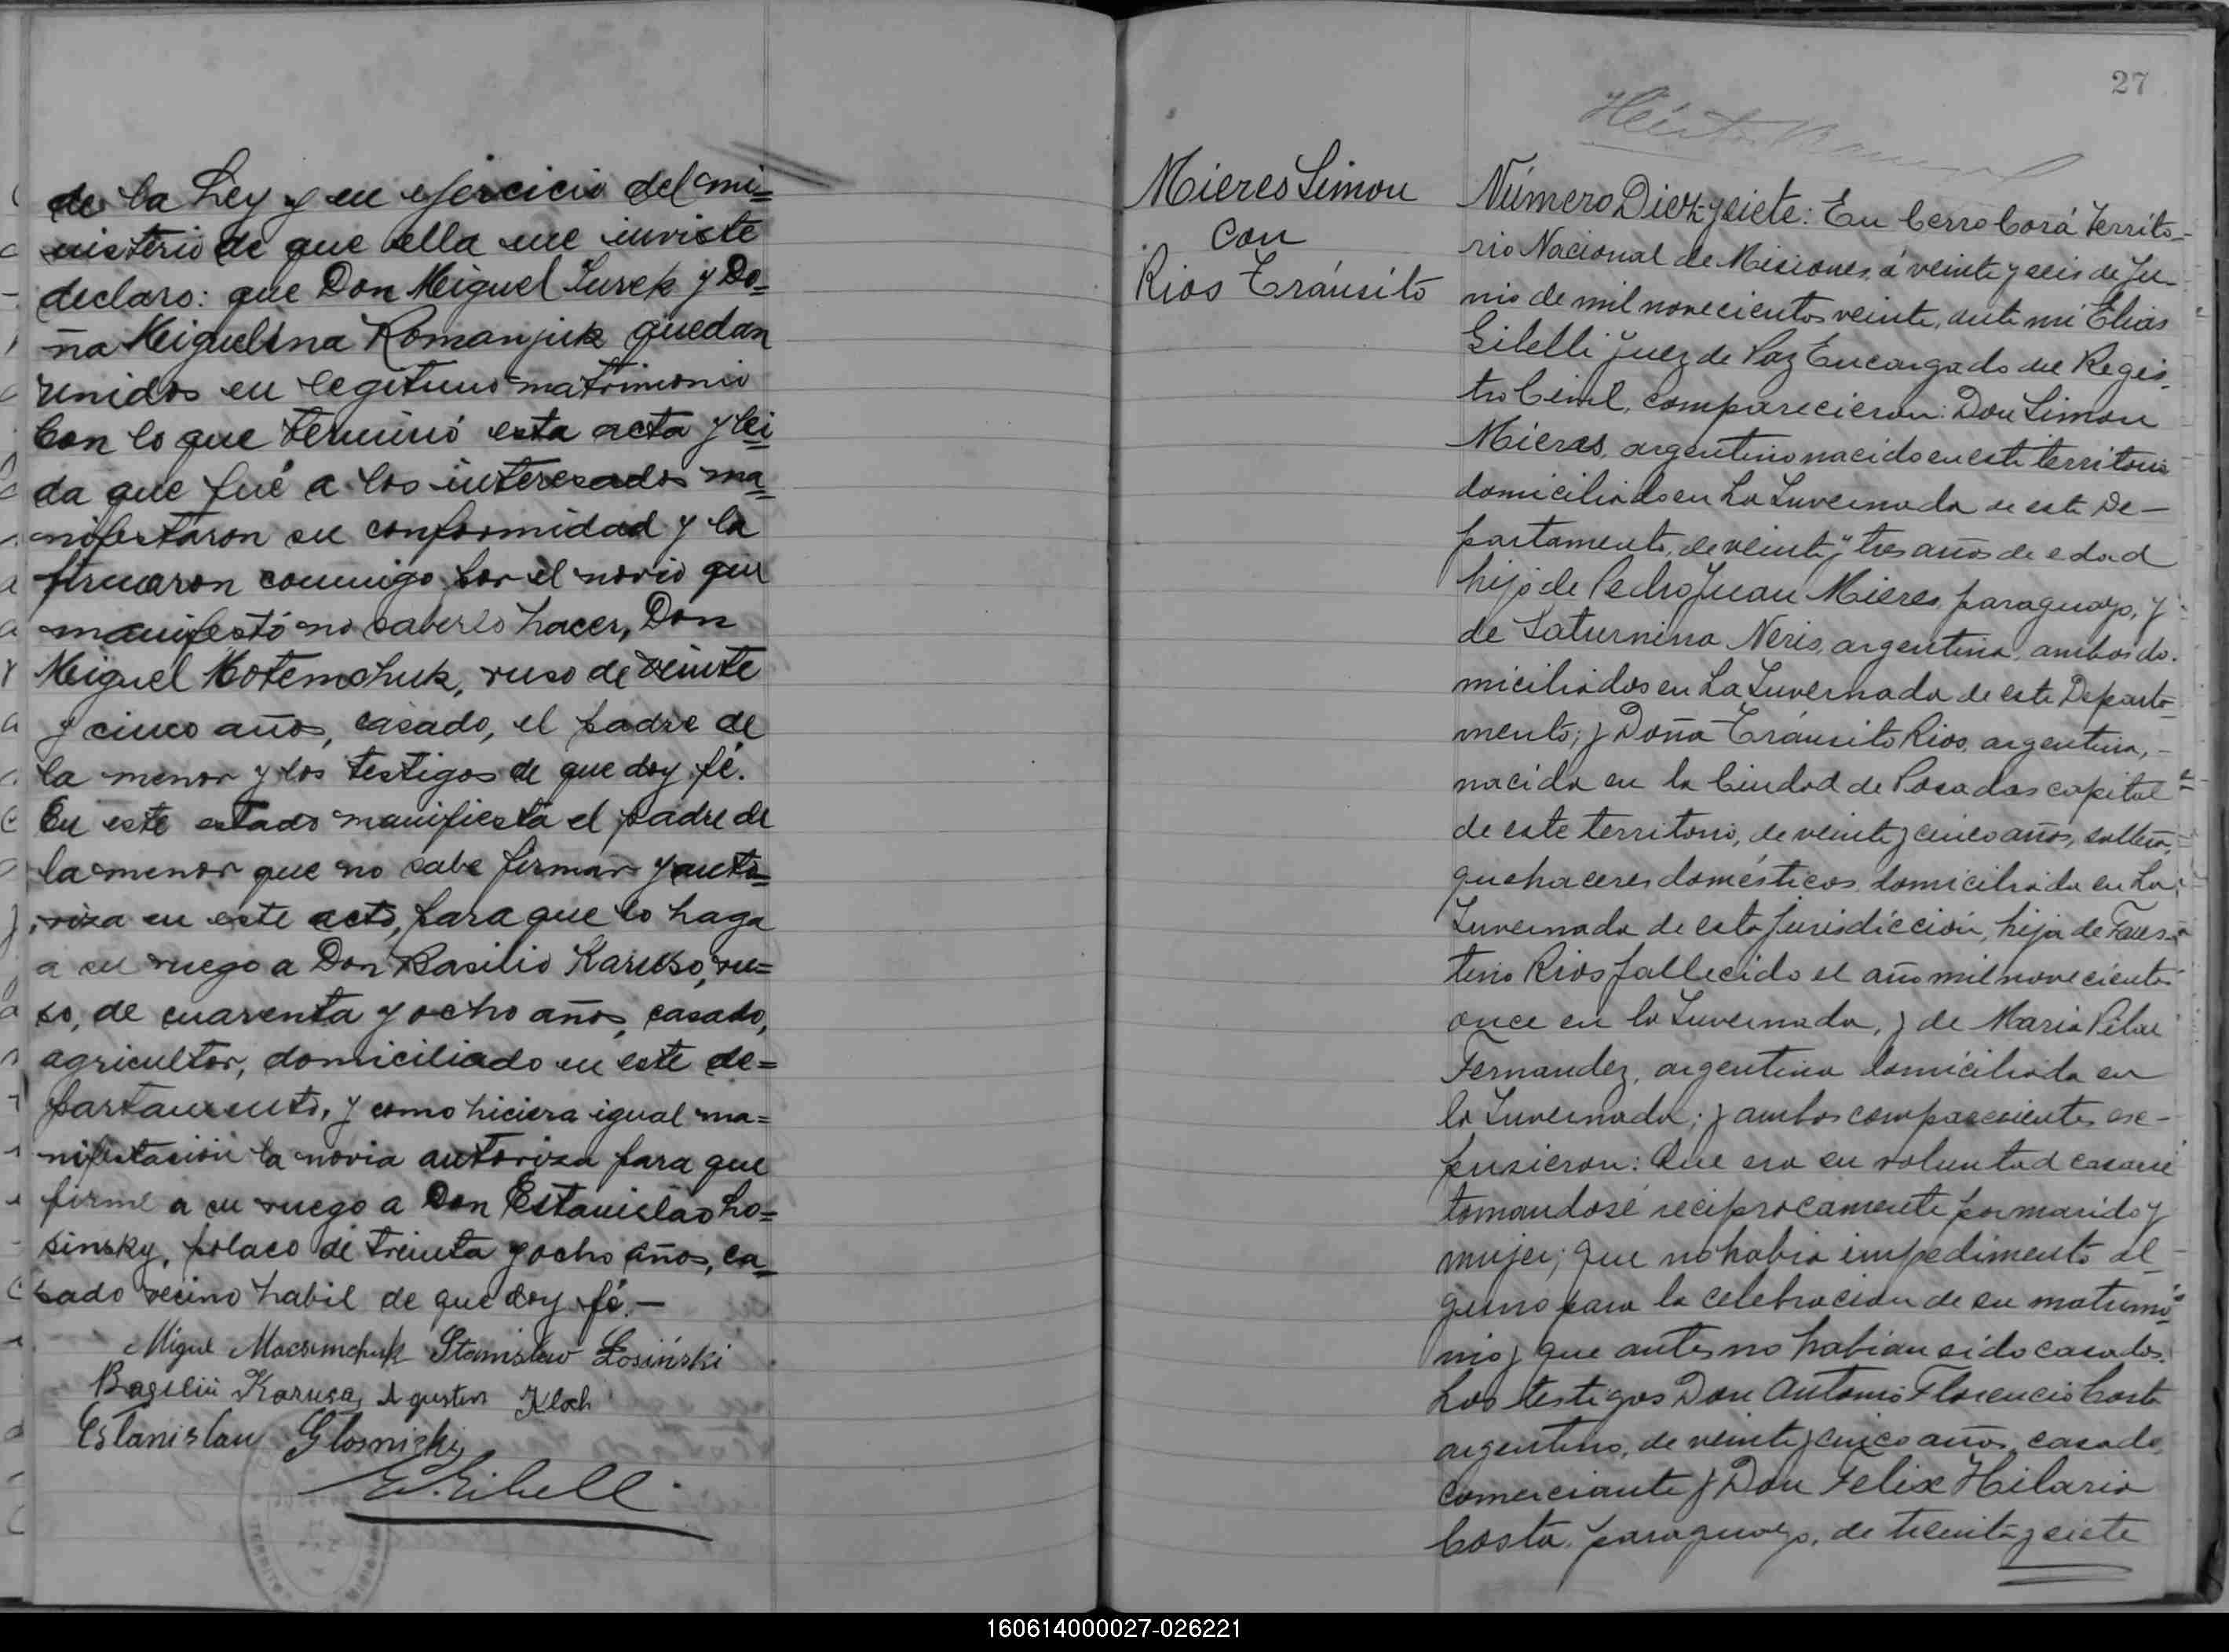 de la Ley y en ejercicio del mi=
nisterio de que ella me inviste
declaro: que Don Miguel Turek y Do=
ña Miguelina Romanjuk quedan
unidos en legitimo matrimonio
Con lo que terminó esta acta y lei
da que fué a los interesados ma=
nifestaron su conformidad y la
firmaron conmigo, por el novio que
manifestó no saberlo hacer, Don
Miguel Motemchuk, ruso de veinte
y cinco años, casado, el padre de
la menor y los testigos de que doy fé.
En este estado manifiesta el padre de
la menor que no sabe firmar y auto=
riza en este acto, para que lo haga
a su ruego a Don Basilio Karuso, ru=
so, de cuarenta y ocho años, casado,
agricultor, domiciliado en este de=
partamento, y como hiciera igual ma=
nifestación la novia autoriza para que
firme a su ruego a Don Estanislao Lo=
sinsky, polaco de treinta y ocho años, ca=
sado vecino habil de que doy fé.—
Miguel Stanislaw Łosiński
Karusa, Agustin Kloch
Estanislau
27
Mieres Simon
con
Rios Tránsito
Número Diez y siete: En Cerro Corá Territo-
rio Nacional de Misiones, á veinte y seis de Ju-
nio de mil novecientos veinte, ante mi Elias
Gibelli Juez de Paz Encargado del Regis-
tro Civil, comparecieron: Don Simon
Mieres, argentino nacido en este territorio
domiciliado en La Invernada de este De-
partamento, de veinte y tres años de edad
hijo de Pedro Juan Mieres, paraguayo, y
de Saturnina Neris, argentina, ambos do-
miciliados en La Invernada de este Departa-
mento; y Doña Tránsito Rios, argentina,-
nacida en la Ciudad de Posadas capital
de este territorio, de veinte y cinco años, soltera,
quehaceres domésticos, domiciliada en La
Invernada de esta jurisdicción, hija de Faus-
tino Rios fallecido el año mil novecientos
once en la Invernada, y de Maria Pilar
Fernandez, argentina domiciliada en
la Invernada; y ambos comparecientes es-
pusieron: Que era su voluntad casarse
tomandosé reciprocamente por marido y
mujer; que no habia impedimento al-
guno para la celebracion de su matrimo-
nio y que antes no habian sido casados.
Los testigos Don Antonio Florencio Costa
argentino, de veinte y cinco años, casado,
comerciante y Don Felix Hilario
Costa, paraguayo, de treinta y siete
160614000027-026221